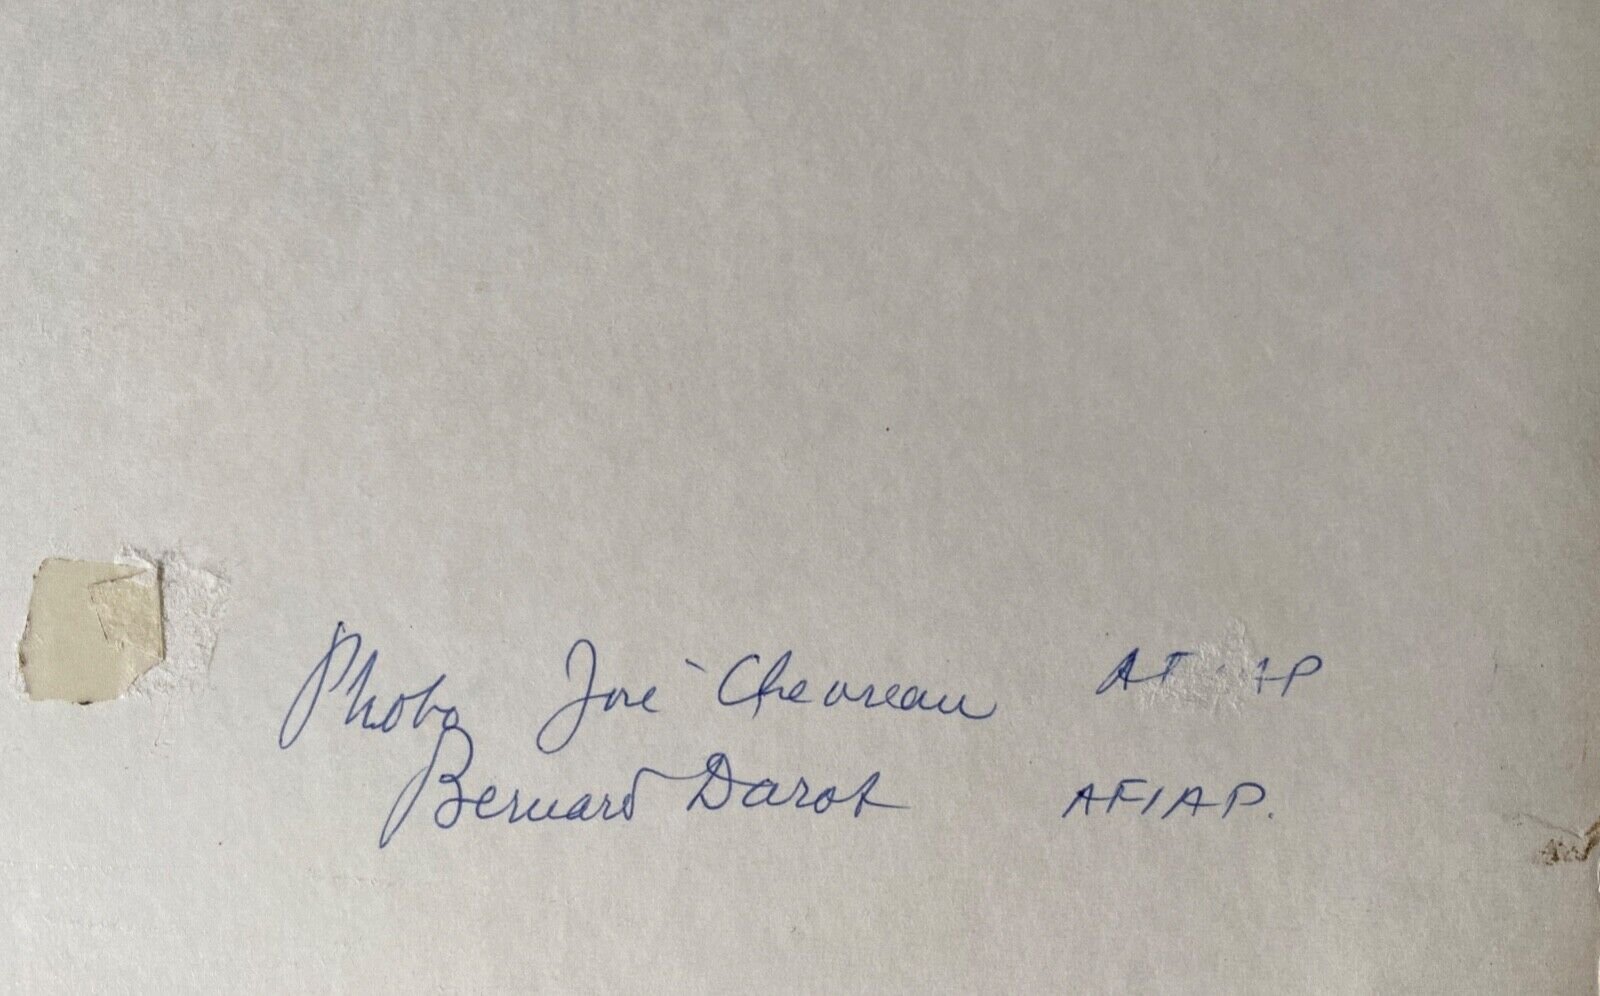 Photo José Chevreau AF AP
Bernard Darot AFIAP.